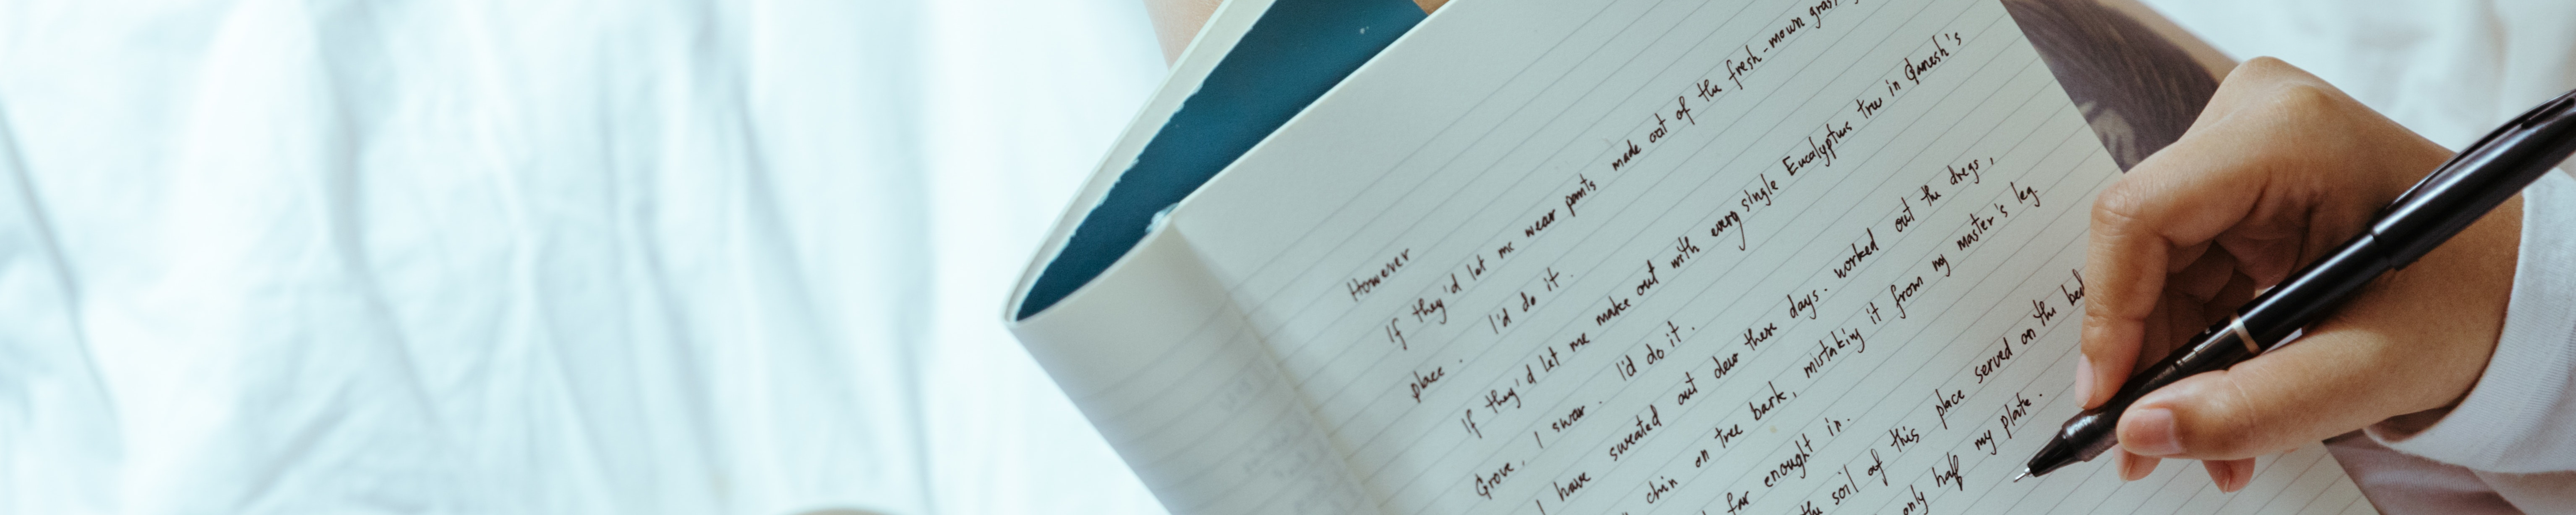 However
If they'd let me wear pants made out of the fresh-mown grass
place. I'd do it.
If they'd let me make out with every single Eucalyptus tree in Ganesh's
Grove, I swear. I'd do it.
I have sweated out dew these days. worked out the dregs,
chin on tree bark, mistaking it from my master's leg.
far enought in.
the soil of this place served on the bed
only half my plate.